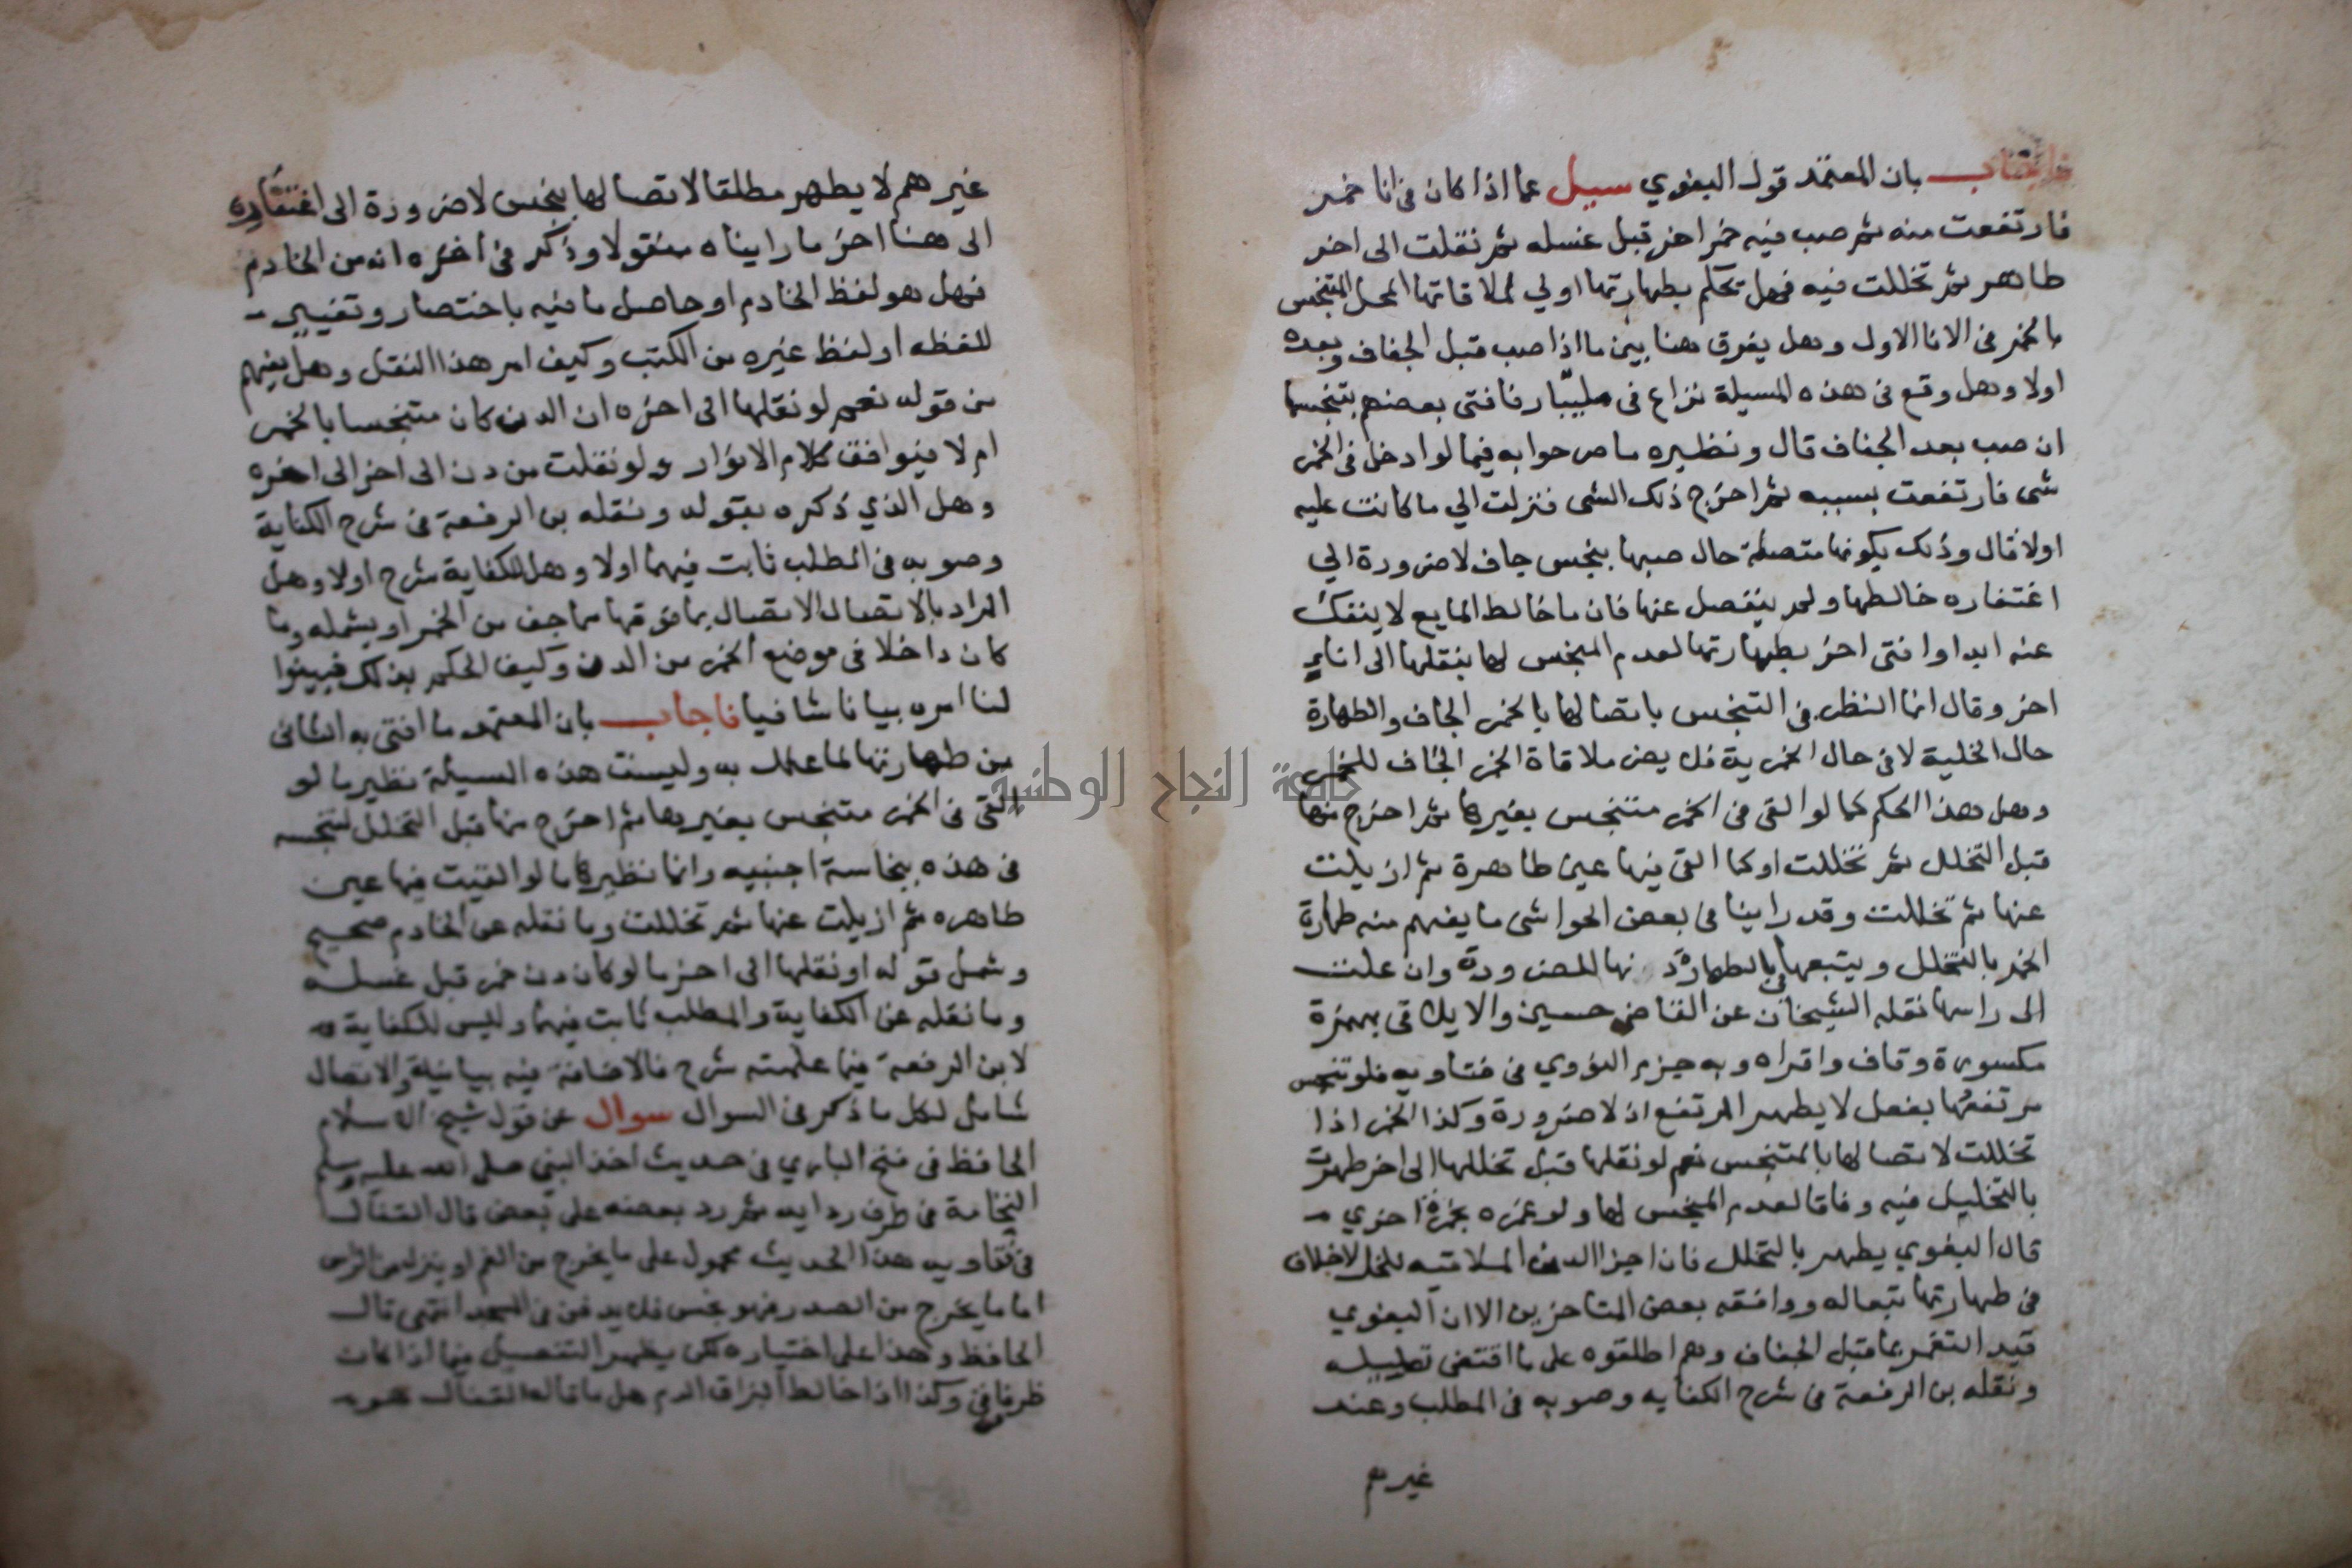 فاجاب بان المعتمد قول البغوي سيل عما اذا كان في انا خمر
فارتفعت منه ثمر صب فيه خمر اخر قبل غسله ثمر نقلت الى اخر
طاهر ثمر تخللت فيه فهل تحكم بطهارتها اولي لملاقاتها المحل المتنجس
بالخمر في الانا الاول وهل يفرق هنا بين ما اذا صب قبل الجفاف وبعده
اولا وهل وقع في هذه المسيلة نزاع في مليبار فافتى بعضهم بتنجسها
ان صب بعد الجفاف قال ونظيره ما صرحوا به فيما لو ادخل في الخمر
شى فارتفعت بسببه ثمر اخرج ذلك الشى فنزلت الي ما كانت عليه
اولا قال وذلك بكونها متصلة حال صبها بنجس جاف لا ضرورة الي
اغتفاره خالطها ولم ينفصل عنها فان ما خالط المايع لا ينفك
عنه ابدا وافتى اخر بطهارتها لعدم المنجس لها بنقلها الى اناء
اخر وقال انما النظر في التنجس باتصالها بالخمر الجاف والطهارة
حال الخلية لا في حال الخمرية فلا يضر ملاقاة الخمر الجاف للخمر
وهل هذا الحكم كما لو القى في الخمر متنجس بغيرها ثمر اخرج منها
قبل التخلل ثمر تخللت او كما القى فيها عين طاهرة ثم ازيلت
عنها ثم تخللت وقد راينا في بعض الحواشى ما يفهم منه طهارة
الخمر بالتخلل ويتبعها في الطهارة دنها للضرورة وان علت
الى راسها نقله الشيخان عن القاضي حسين والايلاقى بهمزة
مكسورة وقاف واقراه وبه جزم النووي في فتاويه فلو تنجس
مرتفعها بفعل لا يطهر المرتفع اذ لا ضرورة وكذا الخمر اذا
تخللت لاتصالها بالمتنجس نعم لو نقلها قبل تخللها الى اخر طهرت
بالتخليل فيه وفاقا لعدم المنجس لها ولو غمره بخمرة اخري
قال البغوي يطهر بالتخلل فان اجزا الدن الملاقيه للخل لا خلاف
في طهارتها تبعا له ووافقه بعض المتاخرين الا ان البغوي
قيد التغمر بما قبل الجفاف وهم اطلقوه على ما اقتضى تعليله
ونقله بن الرفعة في شرح الكفايه وصوبه في المطلب وعند
غيرهم
غيرهم لا يطهر مطلقا لاتصالها بنجس لا ضرورة الى اغتفاره
الى هنا اخر ما رايناه منقولا وذكر في اخره انه من الخادم
فهل هو لفظ الخادم او حاصل ما فيه باختصار وتغيير
للفظه او لفظ غيره من الكتب وكيف امر هذا النقل وهل يفهم
من قوله نعم لو نقلها الى اخره ان الدن كان متنجسا بالخمر
ام لا فيوافق كلام الانوار ولو نقلت من دن الى اخر الى اخره
وهل الذي ذكره بقوله ونقله بن الرفعة في شرح الكفاية
وصوبه في المطلب ثابت فيهما اولا وهل للكفاية شرح اولا وهل
المراد بالاتصال الاتصال بما فوقها مما جف من الخمر او يشمله وما
كان داخلا في موضع الخمر من الدن وكيف الحكم بذلك فبينوا
لنا امره بيانا شافيا فاجاب بان المعتمد ما افتى به الثاني
من طهارتها لما علل به وليست هذه المسيلة نظير ما لو
القي في الخمر متنجس بغيرها ثم اخرج منها قبل التخلل لتنجسه
في هذه بنجاسة اجنبيه وانما نظيرها ما لو القيت فيها عين
طاهره ثم ازيلت عنها ثمر تخللت وما نقله عن الخادم صحيح
وشمل قوله او نقلها الى اخر ما لو كان دن خمر قبل غسله
وما نقله عن الكفاية والمطلب ثابت فيهما وليس للكفاية
لابن الرفعة فيما علمته شرح فالاضافة فيه بيانية والاتصال
شامل لكل ما ذكر في السوال سوال عن قول شيخ الاسلام
الحافظ في فتح الباري في حديث اخذ النبي صلى الله عليه وسلم
النخامة في طرف ردايه ثمر رد بعضه على بعض قال القفال
في فتاويه هذا الحديث محمول على ما يخرج من الفم او ينزل من الراس
اما ما يخرج من الصدر فهو نجس فلا يدفن في المسجد انتهى قال
الحافظ وهذا على اختياره لكن يظهر التفصيل فيما اذا كان
طرفا في وكذا اذا خالط البزاق الدم هل ما قاله القفال
جامعة النجاح الوطنية